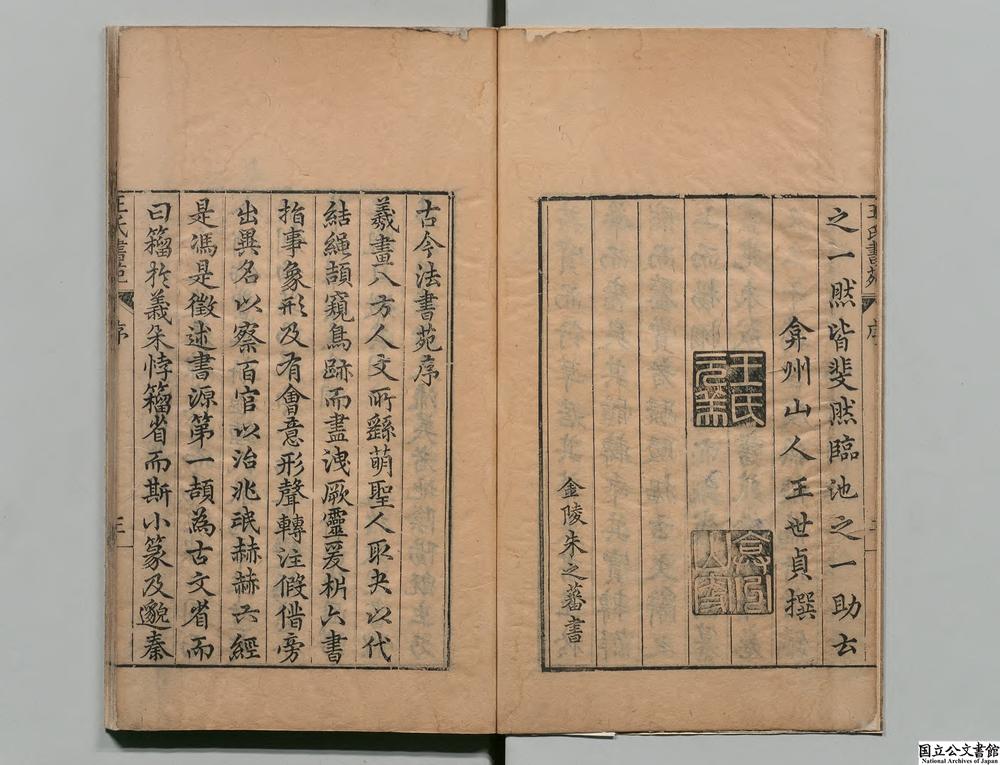 王氏書苑 序
之一然皆斐然臨池之一助云
弇州山人王世貞撰
王氏元美
金陵朱之蕃書
古今法書苑序
羲畫八方人文所繇萌聖人取夬以代
結繩頡窺鳥跡而盡洩厥靈爰析六書
指事象形及有會意形聲轉注假借旁
出異名以察百官以治兆氓赫赫六經
是馮是徵述書源第一頡為古文省而
曰籀於羲朱悖籀省而斯小篆及邈秦
王氏書苑 序
国立公文書館
National Archives of Japan